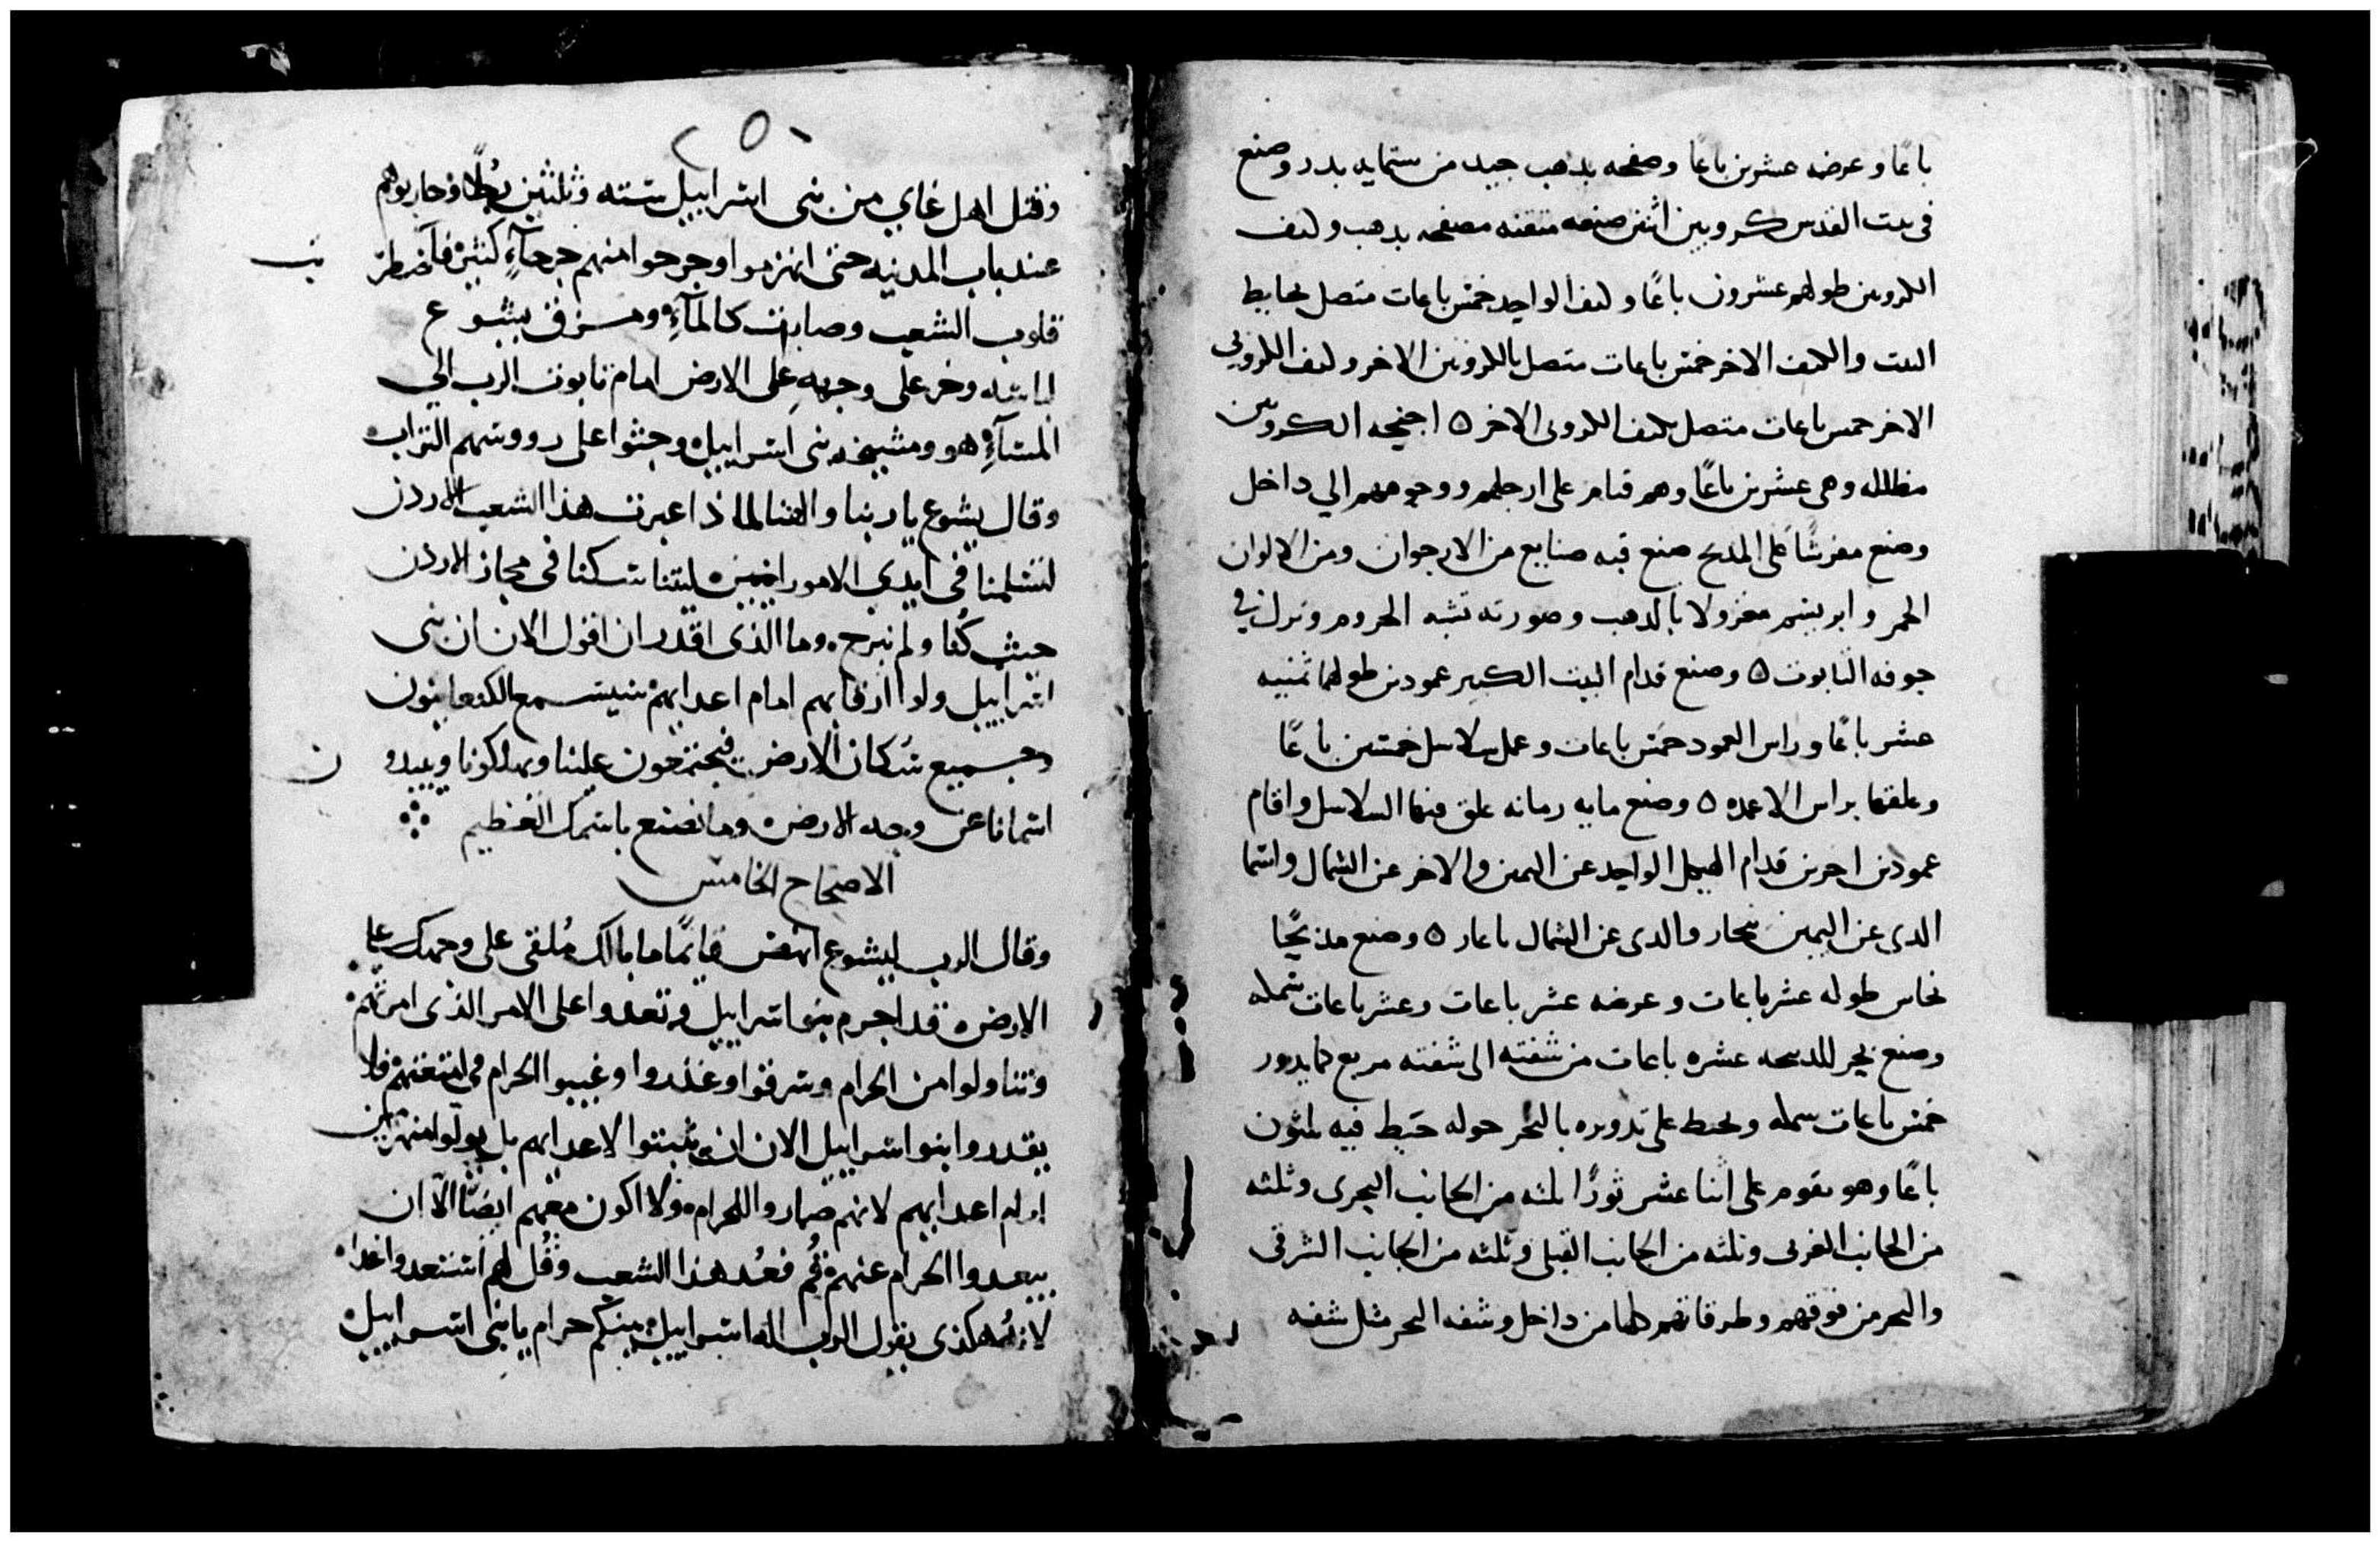 باعًا وعرضه عشرين باعًا وصفحه بدهب جيد من ستمايه بدر وصنع
في بيت القدس كروبين اثنين صنعه متقنه مصفحه بدهب ولنف
الكروبين طولهم عشرون باعًا ولنف الواحد خمس باعات متصل بحايط
البيت والكنف الاخر خمس باعات متصل بالكروبين الاخر ولنف الكروبي
الاخر خمس باعات متصل بكنف الكروبي الاخر ٥ اجنحه الكروبين
مظلله وهي عشرين باعًا وهم قيام على ارجلهم ووجوههم الي داخل
وصنع مفرشًا على المذبح صنع فيه صنايع من الارجوان ومن الالوان
الحمر وابريسم مغزولا بالدهب وصورته تشبه الحروم ونزل في
جوفه التابوت ٥ وصنع قدام البيت الكبير عمودين طولهما ثمنيه
عشر باعًا وراس العمود خمس باعات وعمل سلاسل خمسين باعًا
وعلقها براس الاعمده ٥ وصنع مايه رمانه علق فيها السلاسل واقام
عمودين اخرين قدام الهيكل الواحد عن اليمين والاخر عن الشمال واسما
الدى عن اليمين نجار والدى عن الشمال باعار ٥ وصنع مذبحًا
نحاس طوله عشر باعات وعرضه عشر باعات وعشر باعات سمله
وصنع بحر للمدبحه عشره باعات من شفته الى شفته مربع كما يدور
خمس باعات سمله ويحيط على تدويره بالبحر حوله خيط فيه ثلثون
باعًا وهو يقوم على اثنا عشر ثورًا ثلثه من الجانب البحرى وثلثه
من الجانب الغربى وثلثه من الجانب القبلى وثلثه من الجانب الشرقى
والبحر من فوقهم وطرقاتهم كلها من داخل وشفه البحر مثل شفه
وقتل اهل غاي من بنى اسراييل سته وثلثين رجُلًا وحاربوهم
عند باب المدينه حتى انهزموا وجرحوا منهم جرحآءٍ كثيرٍه فاضطربت
قلوب الشعب وصارت كالمآءِ ومزق يشوع
لباسه وخر على وجههِ على الارض امام تابوت الرب الي
المسآءِ هو ومشيخه بنى اسراييل وحثوا على رووسهم التراب
وقال يشوع ياربنا والهنا لماذا عبرت هذا الشعب الاردن
لتسلمنا في ايدي الامورانيين ليتنا سكنا في مجاز الاردن
حيث كُنا ولم نبرح وما الذى اقدر ان اقول الان ان بنى
اسراييل ولوا ارقابهم امام اعدايهم سيسمع الكنعانيون
وجميع سُكان الارض فيجتمعون علينا ويهلكونا ويبيدون
اسمانا عن وجه الارض وما نصنع باسمك العظيم
الاصحاح الخامس
وقال الرب ليشوع انهض قايمًا ما بالك مُلقى على وجهك على
الارض قد اجرم بنو اسراييل وتعدوا على الامر الذى امرتهم
وتناولوا من الحرام وسرقوا وغدروا وغيبوا الحرام في امتعتهم فلا
يقدروا بنوا اسراييل الان ان يثبتوا لاعدايهم بل يولوا منهزمين
امام اعدايهم لانهم صاروا للحرام ولا اكون معهم ايضًا الا ان
يبعدوا الحرام عنهم قُم فعُد هذا الشعب وقُل لهم استعدوا غدًا
لانه هكذى يقول الرب اله اسراييل بينكم حرام يا بنى اسراييل